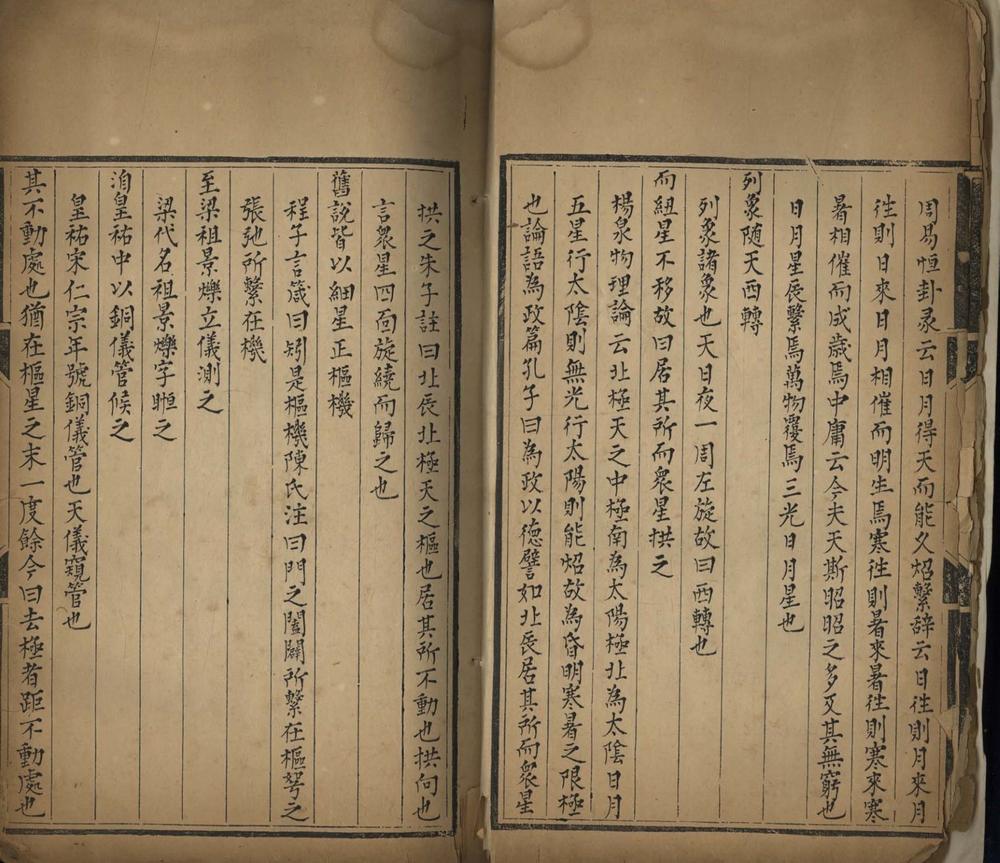 周易恒卦彖云日月得天而能久炤繫辞云日徃則月來月
徃則日來日月相催而明生焉寒徃則暑來暑徃則寒來寒
暑相催而成歳焉中庸云今夫天斯昭昭之多及其無窮也
日月星辰繫焉萬物覆焉三光日月星也
列象随天西轉
列象諸象也天日夜一周左旋故曰西轉也
而紐星不移故曰居其所而衆星拱之
楊泉物理論云北極天之中極南為太陽極北為太陰日月
五星行太陰則無光行太陽則能炤故為昏明寒暑之限極
也論語為政篇孔子曰為政以德譬如北辰居其所而衆星
拱之朱子註曰北辰北極天之樞也居其所不動也拱向也
言衆星四面旋繞而歸之也
舊說皆以細星正樞機
程子言箴曰矧是樞機陳氏注曰門之闔闢所繫在樞弩之
張弛所繫在機
至梁祖景爍立儀測之
梁代名祖景爍字暅之
洎皇祐中以銅儀管候之
皇祐宋仁宗年號銅儀管也天儀窺管也
其不動處也猶在樞星之末一度餘今曰去極者距不動處也